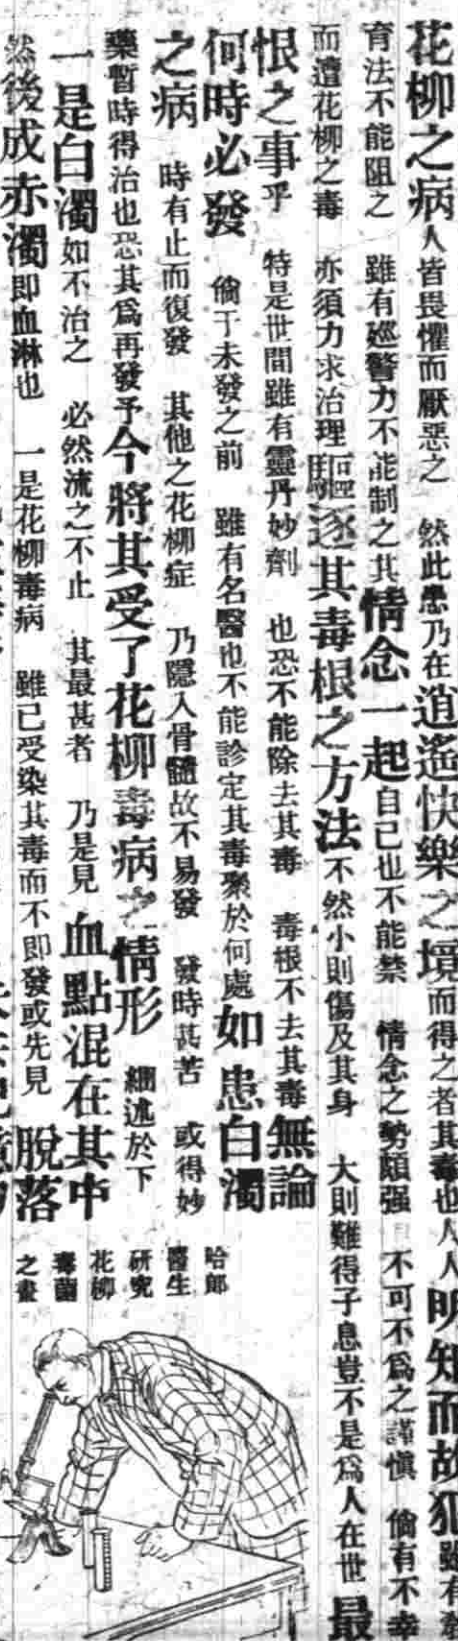 花柳之病人皆畏懼而厭惡之 然此患乃在逍遙快樂之境而得之者其毒也人人明知而故犯雖有教
育法不能阻之 雖有巡警力不能制之其情念一起自己也不能禁 情念之勢頗强 不可不爲之謹愼 倘有不幸
而遭花柳之毒 亦須力求治理驅逐其毒根之方法不然小則傷及其身 大則難得子息豈不是爲人在世最
恨之事乎 特是世間雖有靈丹妙劑 也恐不能除去其毒 毒根不去其毒無論
何時必發 倘于未發之前 雖有名醫也不能診定其毒聚於何處如患白濁
之病 時有止而復發 其他之花柳症 乃隱入骨髓故不易發 發時甚苦 或得妙
藥暫時得治也恐其爲再發予今將其受了花柳毒病之情形 細述於下
一是白濁如不治之 必然流之不止 其最甚者 乃是見血點混在其中
然後成赤濁即血淋也 一是花柳毒病 雖已受染其毒而不即發或先見脫落
哈郎
醫生
研究
花柳
毒菌
之畫